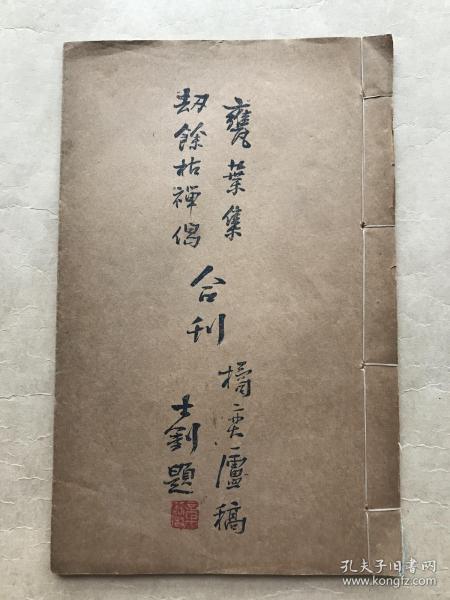 甕葉集
劫餘枯禪偶
合刊
橘叟廬稿
士釗題
孔夫子旧书网
www.kongfz.com